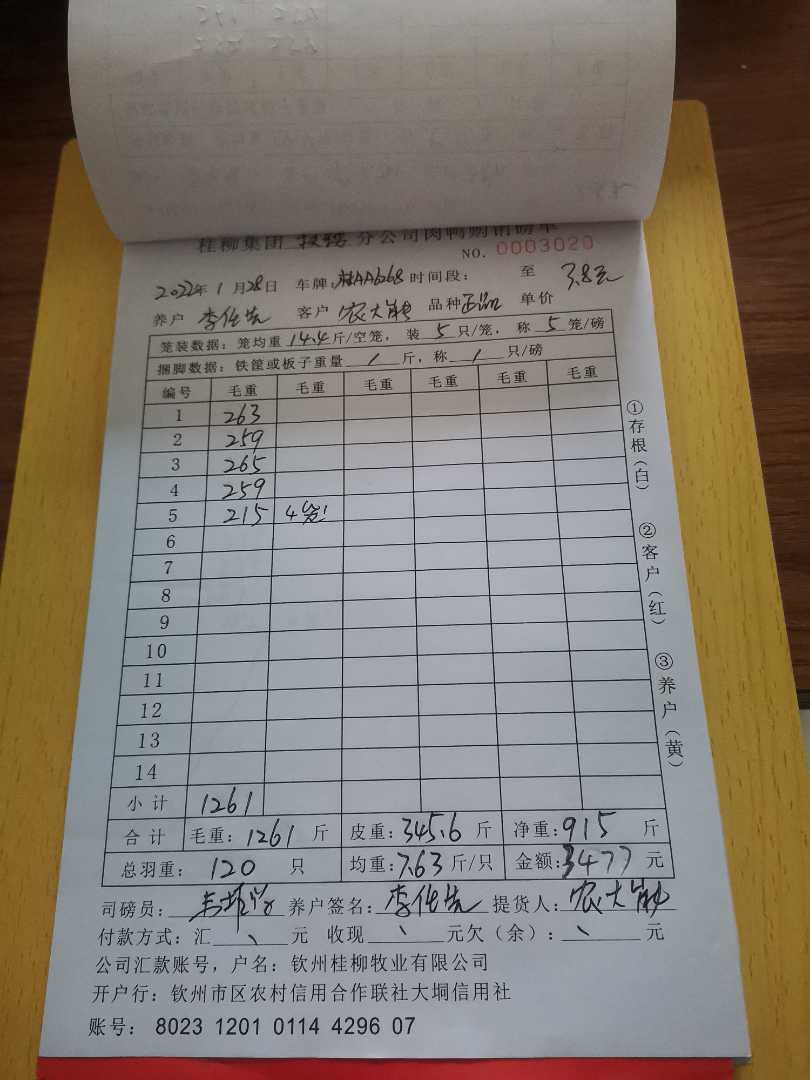 桂柳集团 分公司肉鸭购销磅单
NO. 0003020
2022年1月28日 车牌:桂AA6268 时间段: 至 3.8元
养户 李仕先 客户 农大 品种 正品 单价
笼装数据: 笼均重 14.4 斤/空笼, 装 5 只/笼, 称 5 笼/磅
捆脚数据: 铁筐或板子重量 / 斤, 称 / 只/磅
编号 毛重 毛重 毛重 毛重 毛重 毛重
1 263
2 259
3 265
4 259
5 215 4笼
6
7
8
9
10
11
12
13
14
小计 1261
合计 毛重: 1261 斤 皮重: 345.6 斤 净重: 915 斤
总羽重: 120 只 均重: 7.63 斤/只 金额: 3477 元
司磅员: 养户签名: 李仕先 提货人: 农大
付款方式: 汇 、 元 收现 、 元欠(余): 、 元
公司汇款账号,户名: 钦州桂柳牧业有限公司
开户行: 钦州市区农村信用合作联社大垌信用社
账号: 8023 1201 0114 4296 07
①存根(白) ②客户(红) ③养户(黄)